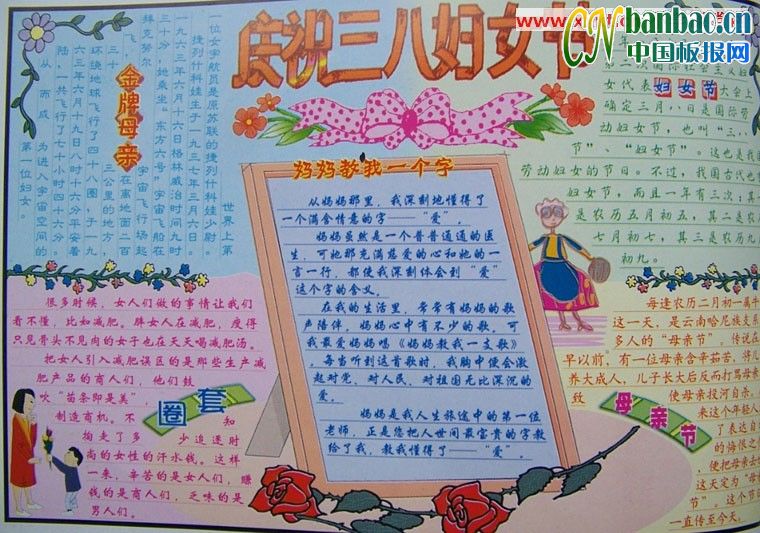 庆祝三八妇女节
CNbanbao.cn
中国板报网
世界上第
一位女宇航员是原苏联的捷列什科娃少尉。
捷列什科娃生于一九三七年三月六日。
一九六三年六月十六日格林威治时间九时
三十分,她乘坐“东方六号”宇宙飞船在
拜克努尔
宇宙飞行场起
飞,
在离地面二百
三十
三公里的地方,
环绕地球飞行了四十八圈,于一九
六三年六月十九日八时十六分平安着
陆,一共飞行了七十小时四十六分。
从而成
为进入宇宙空间的
第一位妇女。
金牌母亲
妈妈教我一个字
从妈妈那里,我深刻地懂得了
一个满含情意的字——“爱”。
妈妈虽然是一个普普通通的医
生,可她那充满慈爱的心和她的一
言一行,都使我深刻体会到“爱”
这个字的含义。
在我的生活里,常常有妈妈的歌
声陪伴,妈妈心中有不少的歌,可
我最爱妈妈唱《妈妈教我一支歌》
。每当听到这首歌时,我胸中便会激
起对党、对人民、对祖国无比深沉的
爱。
妈妈是我人生旅途中的第一位
老师,正是您把人世间最宝贵的字教
给了我,教我懂得了——“爱”。
女代表
妇女节
大会上
确定三月八日是国际劳
动妇女节,也叫“三八
节”、“妇女节”。这也是我国
劳动妇女的节日。不过,我国古代也有
妇女节,而且一年有三次:其一
是农历五月初五,其二是农
七月初七,其三是农历九
初九。
很多时候,女人们做的事情让我们
看不懂,比如减肥。胖女人在减肥,瘦得
只见骨头不见肉的女子也在天天喝减肥汤。
把女人引入减肥误区的是那些生产减
肥产品的商人们,他们鼓
吹“苗条即是美”,
制造商机。不
知
掏走了多
少追逐时
尚的女性的汗水钱。这样
一来,辛苦的是女人们,赚
钱的是商人们,乏味的是
男人们。
圈套
每逢农历二月初一属牛
这一天,是云南哈尼族支系
多人的“母亲节”。传说在
早以前,有一位母亲含辛茹苦,将儿
养大成人,儿子长大后反而打骂母亲
致
使母亲投河自杀。
来这个年轻人
了表达自
的悔恨之
便把母亲去
这天定为“母
节”。这个节
一直传至今天。
母亲节